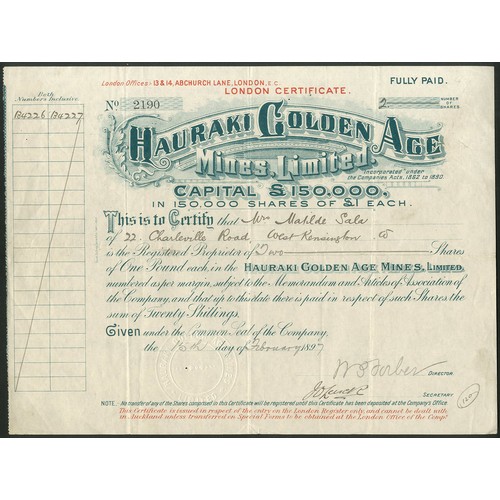 London Offices:- 13 & 14, ABCHURCH LANE, LONDON, E.C.
LONDON CERTIFICATE.
FULLY PAID.
Both
Numbers Inclusive
No 2190
2
NUMBER
OF
SHARES
134226 134227
HAURAKI GOLDEN AGE
Mines, Limited.
Incorporated under
the Companies Acts, 1862 to 1890.
CAPITAL £150,000.
IN 150,000 SHARES OF £1 EACH.
This is to Certify that Mrs Matilde Sala
of 22 Charleville Road, West Kensington
is the Registered Proprietor of Two Shares
of One Pound each, in the HAURAKI GOLDEN AGE MINES, LIMITED,
numbered as per margin, subject to the Memorandum and Articles of Association of
the Company, and that up to this date there is paid in respect of such Shares the
sum of Twenty Shillings.
Given under the Common Seal of the Company,
the 16th day of February 1897
DIRECTOR
SECRETARY
NOTE. No transfer of any of the Shares comprised in this Certificate will be registered until this Certificate has been deposited at the Company's Office
This Certificate is issued in respect of the entry on the London Register only, and cannot be dealt with
in Auckland unless transferred on Special Forms to be obtained at the London Office of the Compy.